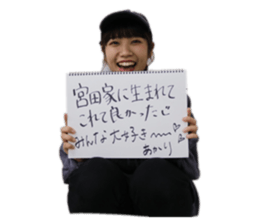 宮田家に生まれて
これて良かったじ
みんな大好き〜〜
あかり